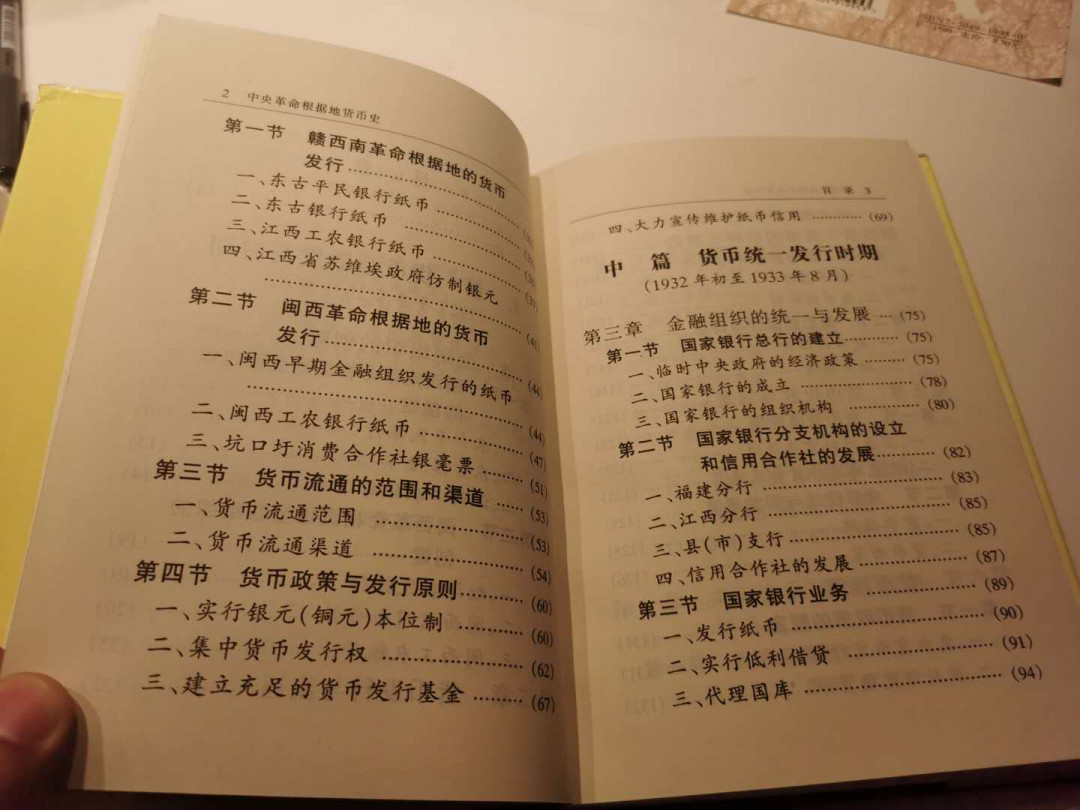 2 中央革命根据地货币史
第一节 赣西南革命根据地的货币
发行
一、东古平民银行纸币
二、东古银行纸币 ………… (36)
三、江西工农银行纸币 ………… (37)
四、江西省苏维埃政府仿制银元
………… (41)
第二节 闽西革命根据地的货币
发行………… (44)
一、闽西早期金融组织发行的纸币
………… (44)
二、闽西工农银行纸币………… (47)
三、坑口圩消费合作社银毫票 ……… (51)
第三节 货币流通的范围和渠道 …… (53)
一、货币流通范围 ………… (53)
二、货币流通渠道 ………… (54)
第四节 货币政策与发行原则……… (60)
一、实行银元(铜元)本位制 ……… (60)
二、集中货币发行权 ………… (62)
三、建立充足的货币发行基金 ……… (67)
目 录 3
四、大力宣传维护纸币信用 ……… (69)
中 篇 货币统一发行时期
(1932年初至1933年8月)
第三章 金融组织的统一与发展 … (75)
第一节 国家银行总行的建立……… (75)
一、临时中央政府的经济政策 ……… (75)
二、国家银行的成立 ………… (78)
三、国家银行的组织机构 ………… (80)
第二节 国家银行分支机构的设立
和信用合作社的发展……… (82)
一、福建分行 ………… (83)
二、江西分行 ………… (85)
三、县(市)支行………… (85)
四、信用合作社的发展 ………… (87)
第三节 国家银行业务 ………… (89)
一、发行纸币 ………… (90)
二、实行低利借贷 ………… (91)
三、代理国库 ………… (94)